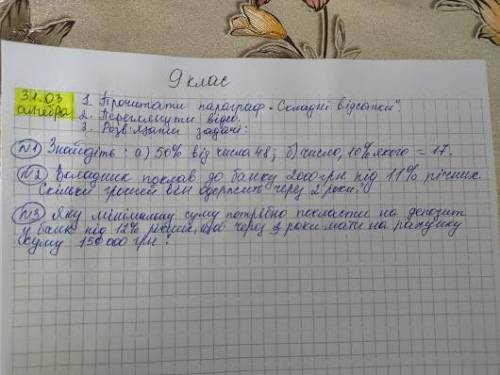 9 клас
31.03
алгебра
1. Прочитати параграф "Складні відсотки"
2. Переглянути відео.
3. Розв'язати задачі:
№1 Знайдіть: а) 50% від числа 48; б) число, 10% якого = 17.
№2 Вкладник поклав до банку 2000 грн під 11% річних.
Скільки грошей він одержить через 2 роки?
№3 Яку мінімальну суму потрібно покласти на депозит
у банк під 12% річних, що через роки мати на рахунку
суму 150000 грн?